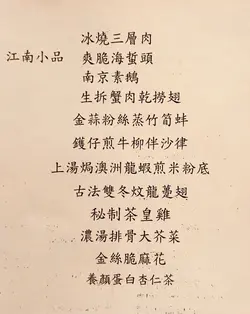 冰燒三層肉
江南小品 爽脆海蜇頭
南京素鵝
生拆蟹肉乾撈翅
金蒜粉絲蒸竹筍蚌
鑊仔煎牛柳伴沙律
上湯焗澳洲龍蝦煎米粉底
古法雙冬炆龍躉翅
秘制茶皇雞
濃湯排骨大芥菜
金絲脆麻花
養顏蛋白杏仁茶